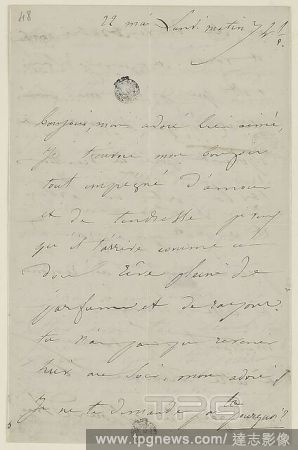 48
22 mai Lundi matin 7 h ½
bonjour, mon adoré bien aimé,
Je t'envoie mon bonjour
tout imprégné d'amour
et de tendresse pour
qu'il t'arrive comme un
doux rêve plein de
parfum et de rayons.
tu n'as pas pu revenir
hier au soir, mon adoré !
Je ne te demande pas pourquoi
TPG
www.tpgnews.com / 達志影像